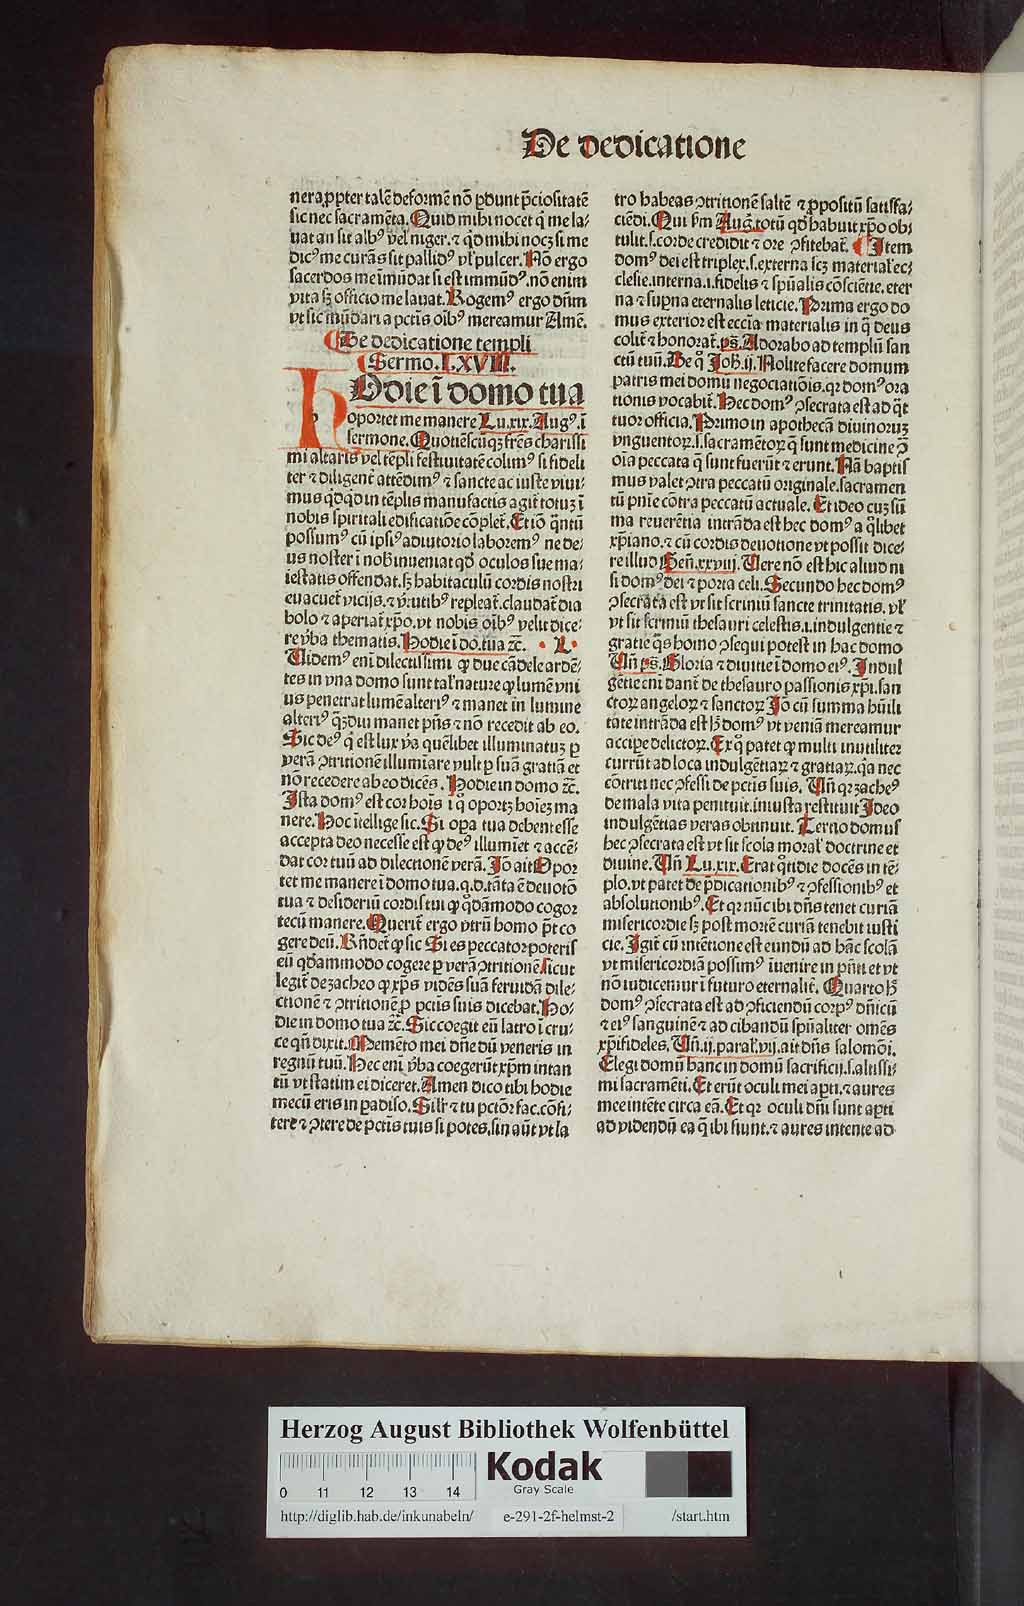 De dedicatione
nera ꝓpter talē deformē nō ꝑdunt p̄ciositatē
sic nec sacramēta. Quid mihi nocet q̄ me la⸗
uat an sit albꝰ vel niger. ⁊ qd mihi nocꝫ si me
dicꝰ me curās sit pallidꝰ vl pulcer. Nō ergo
sacerdos me īmūdat si est immūdꝰ. nō enim
vita sꝫ officio me lauat. Rogemꝰ ergo dn̄m
vt sic mūdari a pctis oībꝰ mereamur Amē.
De dedicatione templi
Sermo. LXVIII.
HOdie ī domo tua
oportet me manere Lu. xix. Augꝰ. ī
sermone. Quotiēscūqꝫ frēs charissi
mi altaris vel tēpli festiuitatē colimꝰ si fideli
ter ⁊ diligent̄ attēdimꝰ ⁊ sancte ac iuste viui⸗
mus qdqd in tēplis manufactis agit̄ totuꝫ ī
nobis spiritali edificatiōe cōplet̄. Et iō q̄ntū
possumꝰ cū ipsiꝰ adiutorio laboremꝰ ne de⸗
us noster ī nobis inueniat qd oculos sue ma⸗
iestatis offendat. sꝫ habitaculū cordis nostri
euacuet̄ vicijs. ⁊ v̄tutibꝰ repleat̄. claudat̄ dia
bolo ⁊ aperiat̄ xp̄o. vt nobis oībꝰ velit dice⸗
re v̄ba thematis. Hodie ī do. tua ⁊c̄. L
Videmꝰ enī dilectissimi ꝙ due cādele ardē⸗
tes in vna domo sunt tal nature ꝙ lumē vni
us penetrat lumē alteriꝰ ⁊ manet in lumine
alteriꝰ qꝫdiu manet pn̄s ⁊ nō recedit ab eo.
Sic deꝰ q̄ est lux v̄a quēlibet illuminatuꝫ ꝑ
verā ꝯtritionē illumīare vult ꝑ suā gratiā et
nō recedere ab eo dicēs. Hodie in domo ⁊c̄.
Ista domꝰ est cor hois ī q̄ oportꝫ hoieꝫ ma
nere. Hoc ītellige sic. Si opa tua debent esse
accepta deo necesse est ꝙ deꝰ illumīet ⁊ accē⸗
dat cor tuū ad dilectionē verā. Iō ait Opor
tet me manere ī domo tua. q. d. tāta ē deuotō
tua ⁊ desideriū cordis tui ꝙ qdāmodo cogor
tecū manere. Querit̄ ergo vtrū homo pt̄ co
gere deū. Rn̄det̄ ꝙ sic Si es peccator poteris
eū qdāmmodo cogere ꝑ verā ꝯtritionē sicut
legit̄ de zacheo ꝙ xp̄s vidēs suā feruidā dile⸗
ctionē ⁊ ꝯtritionē ꝓ pctis suis dicebat. Ho⸗
die in domo tua ⁊c̄. Sic coegit eū latro ī cru⸗
ce qn̄ dixit. Memēto mei dn̄e dū veneris in
regnū tuū. Hec enī v̄ba coegerūt xp̄m intan
tū vt statim ei diceret. Amen dico tibi hodie
mecū eris in padiso. Silr ⁊ tu pctōr fac. cōfi⸗
tere ⁊ ꝯtere de pctis tuis si potes. sin aūt vt la
tro habeas ꝯtritionē saltē ⁊ ꝓpositū satisfa⸗
ciēdi. Qui sm Aug. totū qd habuit xp̄o ob⸗
tulit. s. corde credidit ⁊ ore ꝯfitebat̄. Item
domꝰ dei est triplex. s. externa scꝫ material ec⸗
clesie. interna. i. fidelis ⁊ spūalis cōsciētie. eter
na ⁊ supna eternalis leticie. Prima ergo do
mus exterior est eccīa materialis in q̄ deus
colit̄ ⁊ honorat̄. ps̄. Adorabo ad templū san
ctū tuū. De q̄ Joh. ij. Nolite facere domum
patris mei domū negociatiōis. qꝛ domꝰ ora
tionis vocabit̄. Hec domꝰ ꝯsecrata est ad q̄t
tuor officia. Primo in apothecā diuinoꝝ
vnguentoꝝ. s. sacramētoꝝ q̄ sunt medicine ꝓ
oīa peccata q̄ sunt fuerūt ⁊ erunt. Nā baptis
mus valet ꝯtra peccatū originale. sacramen
tū pn̄ie cōtra peccatū actuale. Et ideo cuꝫ sū
ma reuerētia intrāda est hec domꝰ a q̄libet
xp̄iano. ⁊ cū cordis deuotione vt possit dice⸗
re illud Gen̄. xxviij. Vere nō est hic aliud ni
si domꝰ dei ⁊ porta celi. Secundo hec domꝰ
ꝯsecrata est vt sit scriniū sancte trinitatis. vl
vt sit scriniū thesauri celestis. i. indulgentie ⁊
gratie q̄s homo ꝯsequi potest in hac domo
Vn̄ ps̄. Gloria ⁊ diuitie ī domo eiꝰ. Indul
gētie enī dant̄ de thesauro passionis xp̄i. san
ctoꝝ angeloꝝ ⁊ sanctoꝝ Iō cū summa hūili
tate intrāda est hꝫ domꝰ vt veniā mereamur
accipe delictoꝝ. Ex q̄ patet ꝙ multi inutiliter
currūt ad loca indulgētiaꝝ ⁊ gratiaꝝ. qa nec
cōtriti nec ꝯfessi de pctis suis. Vn̄ qꝛ zacheꝰ
de mala vita penituit. iniusta restituit Ideo
indulgētias veras obtinuit. Terno domus
hec ꝯsecrata est vt sit scola moral doctrine et
diuine. Vn̄ Lu. xix. Erat q̄tidie docēs in tē⸗
plo. vt patet de p̄dicationibꝰ ⁊ ꝯfessionibꝰ et
absolutionibꝰ. Et qꝛ nūc ibi dn̄s tenet curiā
misericordie sꝫ post mortē curiā tenebit iusti
cie. Igit̄ cū intētione est eundū ad hāc scolā
vt misericordiā possimꝰ īuenire in pn̄ti et vt
nō iudicemur ī futuro eternalit̄. Quarto hꝫ
domꝰ ꝯsecrata est ad ꝯficiendū corpꝰ dn̄icū
⁊ eiꝰ sanguinē ⁊ ad cibandū spūaliter omēs
xp̄ifideles. Vn̄. ij. paral. vij. ait dn̄s salomōi.
Elegi domū hanc in domū sacrificij. s. altissi⸗
mi sacramēti. Et erūt oculi mei apti. ⁊ aures
mee intēte circa eā. Et qꝛ oculi dn̄i sunt apti
ad videndū ea q̄ ibi fiunt. ⁊ aures intente ad
Herzog August Bibliothek Wolfenbüttel
0 11 12 13 14
Kodak
Gray Scale
http://diglib.hab.de/inkunabeln/ e-291-2f-helmst-2 /start.htm